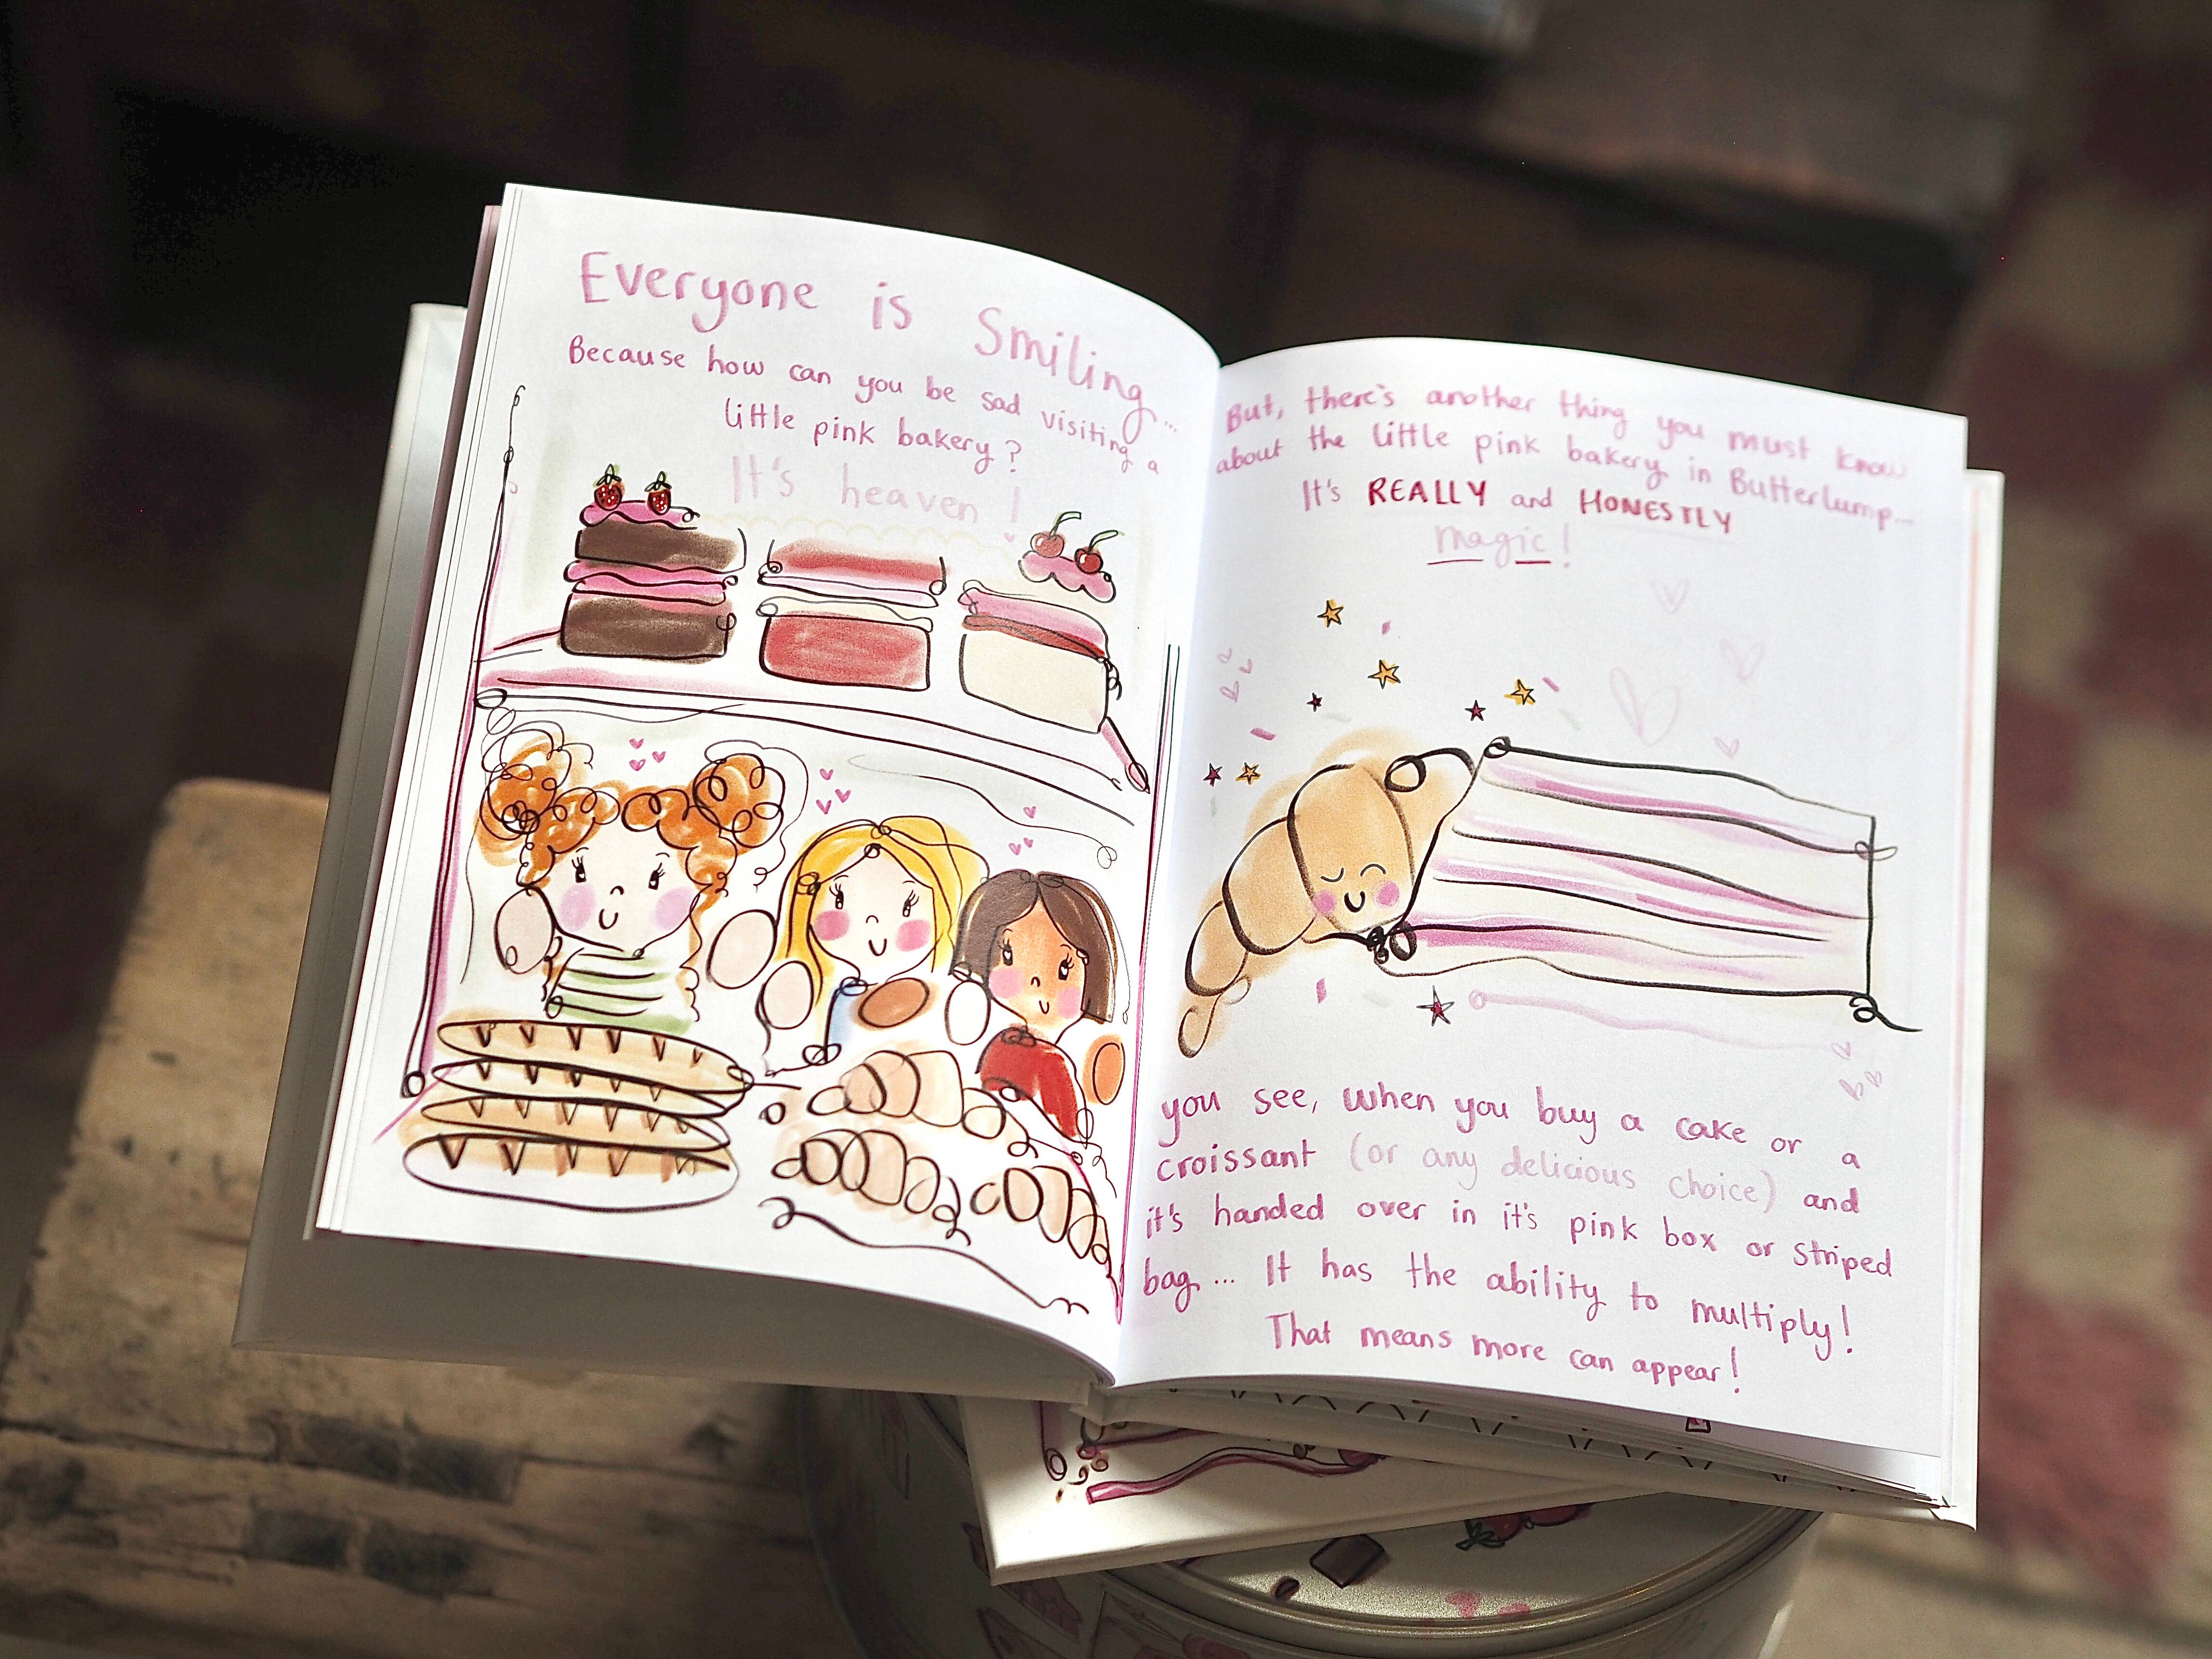 Everyone is Smiling...
Because how can you be sad visiting a
little pink bakery?
It's heaven!
But, there's another thing you must know
about the little pink bakery in Butterlump...
It's REALLY and HONESTLY
magic!
you see, when you buy a cake or a
croissant (or any delicious choice) and
it's handed over in it's pink box or striped
bag... It has the ability to multiply!
That means more can appear!